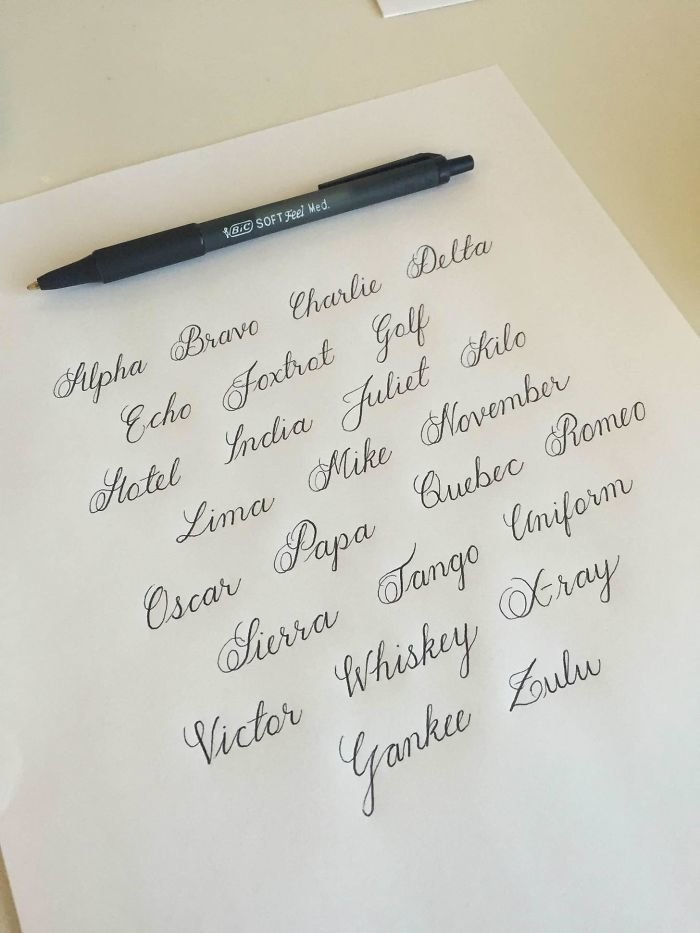 BIC SOFT Feel Med.
Alpha Bravo Charlie Delta
Echo Foxtrot Golf
Hotel India Juliet Kilo
Lima Mike November
Oscar Papa Quebec Romeo
Sierra Tango Uniform
Victor Whiskey X-ray
Yankee Zulu